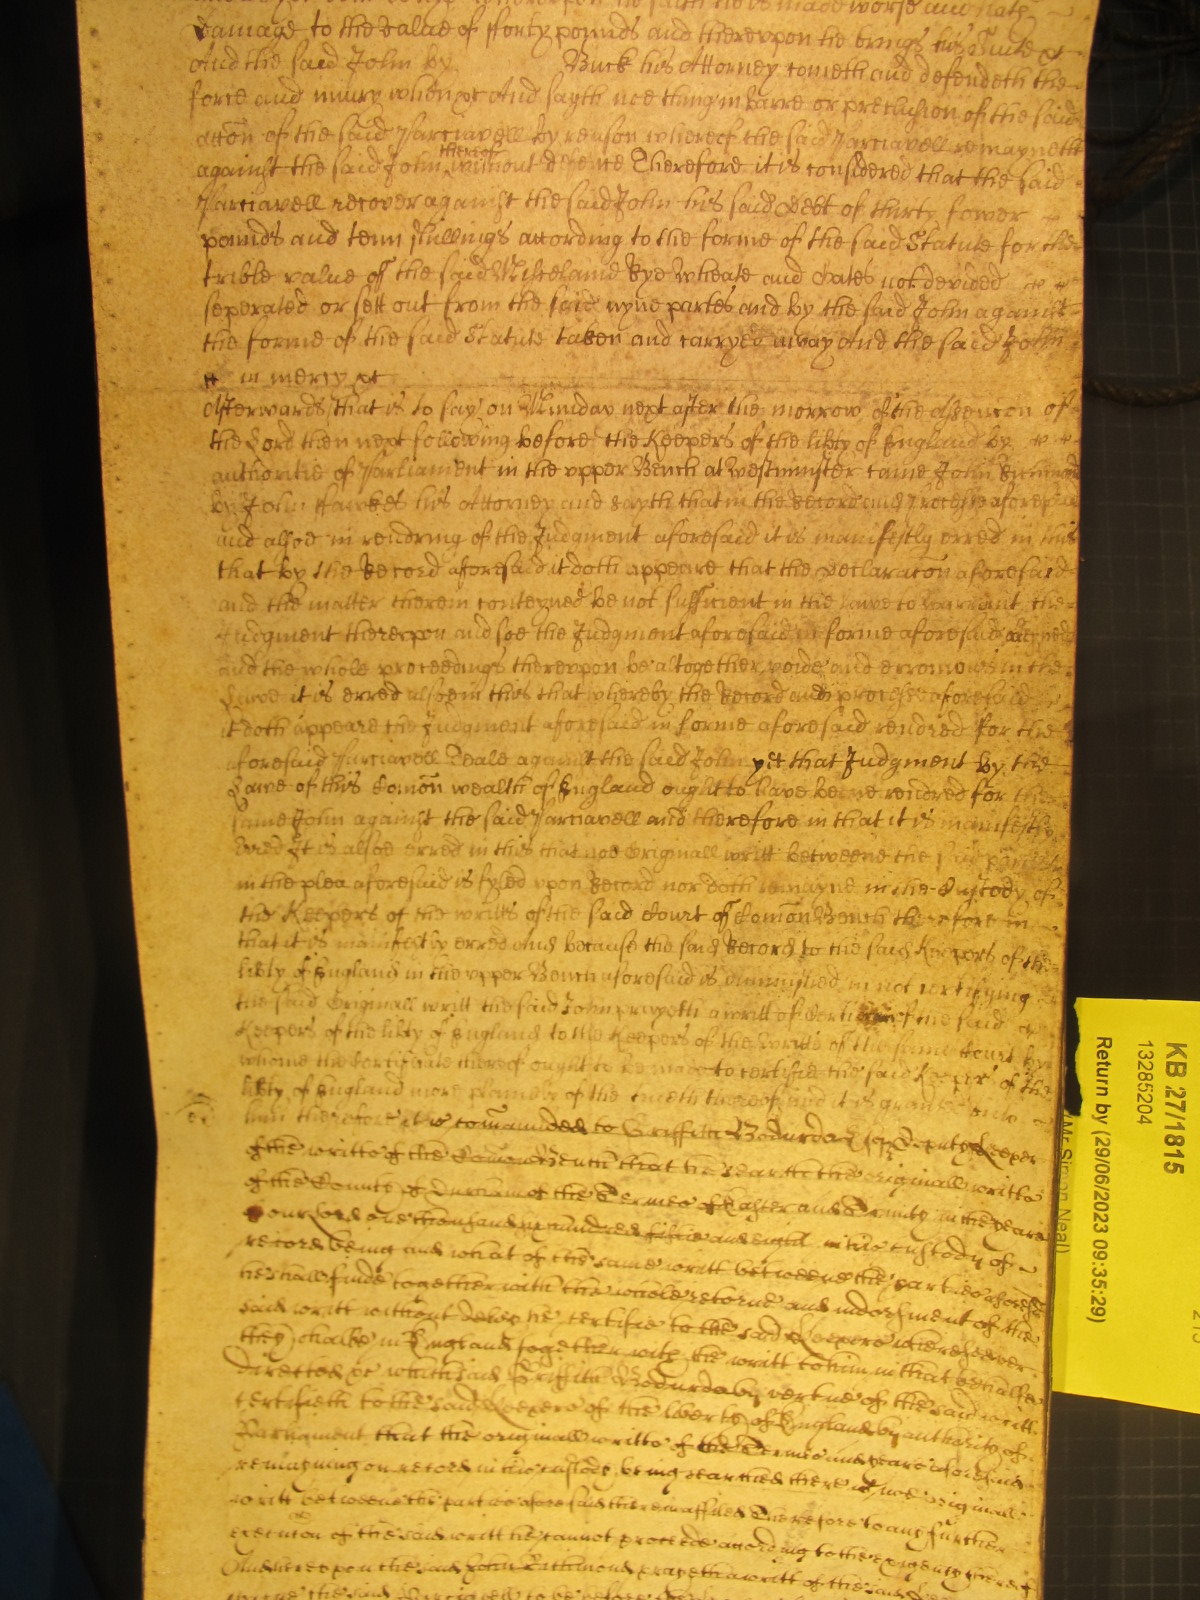 whereupon he saith he is made worse and hath
damage to the value of fforty pounds and thereupon he brings his Suite &c
And the said John by Buck his Attorney cometh and defendeth the
force and iniury when &c And sayth noe thing in barre or preclusion of the said
accōn of the said Parciavell by reason whereof the said Parciavell remayneth
against the said John thereof without defence Therefore it is considered that the said
Parciavell recover against the said John his said debt of thirty fower
pounds and tenn shillings according to the forme of the said Statute for the
treble value of the said Rye Wheate and Oates not devided
seperated or sett out from the said nyne partes and by the said John against
the forme of the said Statute taken and carryed away And the said John
in mercy &c
Afterwards that is to say on Munday next after the morrow of the Ascencon of
the Lord then next following before the Keepers of the libty of England by
authoritie of Parliament in the upper Bench at Westminster came John
by John ffawkes his Attorney and sayth that in the Record and Processe aforesaid
and alsoe in rendring of the Judgment aforesaid it is manifestly erred in this
that by the Record aforesaid it doth appeare that the Declaracōn aforesaid
and the matter therein conteyned be not sufficient in the lawe to warrant the
Judgment thereupon and soe the Judgment aforesaid in forme aforesaid
and the whole proceedings thereupon be altogether voide and erronious in the
Lawe it is erred alsoe in this that whereby the Record and processe aforesaid
it doth appeare the Judgment aforesaid in forme aforesaid rendred for the
aforesaid Parciavell against the said John yet that Judgment by the
Lawe of this Comōn wealth of England ought to have beene rendred for the
same John against the said Parciavell and therefore in that it is manifestly
erred It is alsoe erred in this that noe Originall writt betweene the said parties
in the plea aforesaid is fyled upon Record nor doth remayne in the Custody of
the Keepers of the writts of the said Court of Comōn Bench therefore in
that it is manifestly erred And because the said Record to the said Keepers of the
libty of England in the upper Bench aforesaid is diminished in not certifying
the said Originall writt the said John prayeth a writt of the said
Keepers of the libty of England to the Keepers of the Writts of the same Court by
whome the Certificate thereof ought to be made to certifie the said Keepers of the
libty of England more plainely of the trueth thereof and it is graunted unto
him therefore it is comaunded to Griffith Bodurda Esq Deputy Keeper
of the writts of the Comon Bench that he searche the originall writts
of the County of Durham of the Termes of Easter and Trinity in the yeare
of our Lord one thousand six hundred fiftie and eight in his custody of
record being and what of the same writt betweene the parties aforesaid
he shall finde together with the whole retorne and indorsment of the
said writt without delay he certifie to the said Keepers wheresoever
they shalbe in England together with the writt to him in that behalfe
directed &c which said Griffith Bodurda by vertue of the said writt
certifieth to the said Keepers of the liberty of England by authority of
Parliament that the originall writts of the Termes and yeare aforesaid
remayning on record in his custody being searched there is noe originall
writt betweene the parties aforesaid therein affiled Therefore to any further
execucōn of the said writt he cannot proceede according to the exigency thereof
And thereupon the said John prayeth a writt of the said